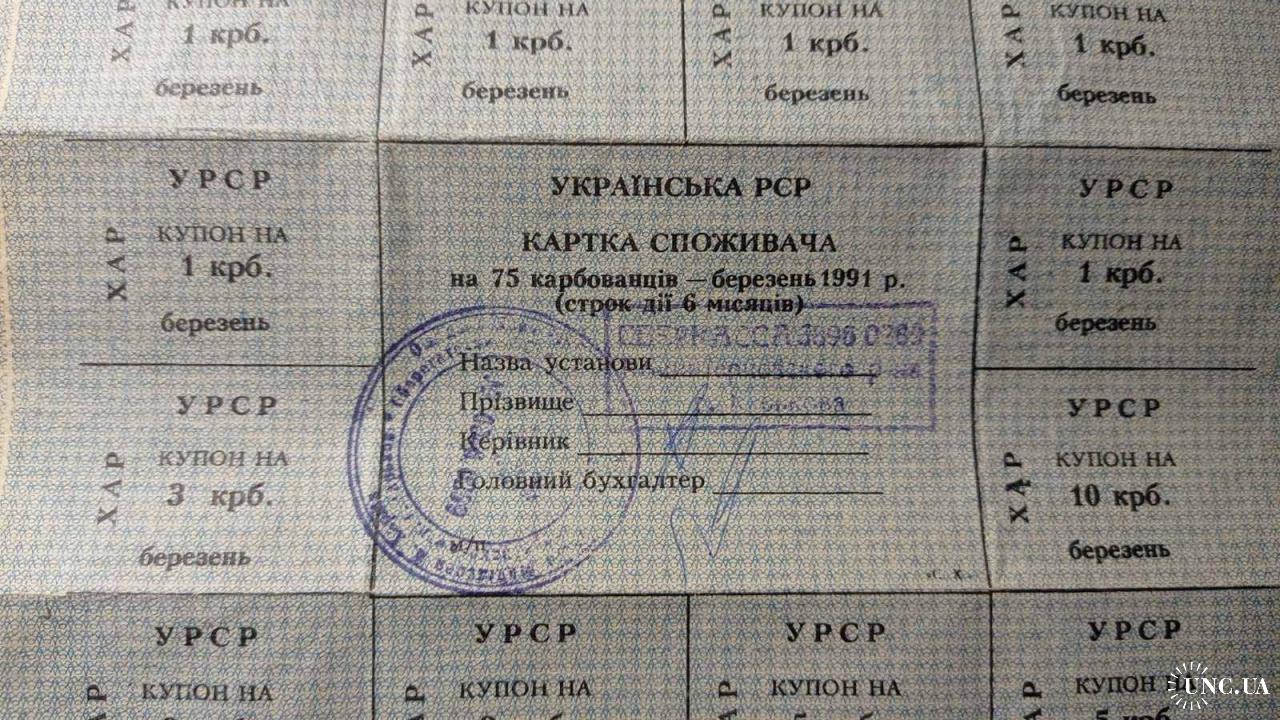 КУПОН НА
1 крб.
березень
ХАР
КУПОН НА
1 крб.
березень
ХАР
КУПОН НА
1 крб.
березень
ХАР
КУПОН НА
1 крб.
березень
ХАР
УРСР
КУПОН НА
1 крб.
березень
ХАР
УКРАЇНСЬКА РСР
КАРТКА СПОЖИВАЧА
на 75 карбованців — березень 1991 р.
(строк дії 6 місяців)
СБЕРКАССА
Назва установи
Прізвище
Керівник
Головний бухгалтер
м/п
УРСР
КУПОН НА
1 крб.
березень
ХАР
УРСР
КУПОН НА
3 крб.
березень
ХАР
УРСР
КУПОН НА
10 крб.
березень
ХАР
УРСР
КУПОН НА
УРСР
КУПОН НА
ХАР
УРСР
КУПОН НА
УРСР
КУПОН
ХАР
UNC.UA